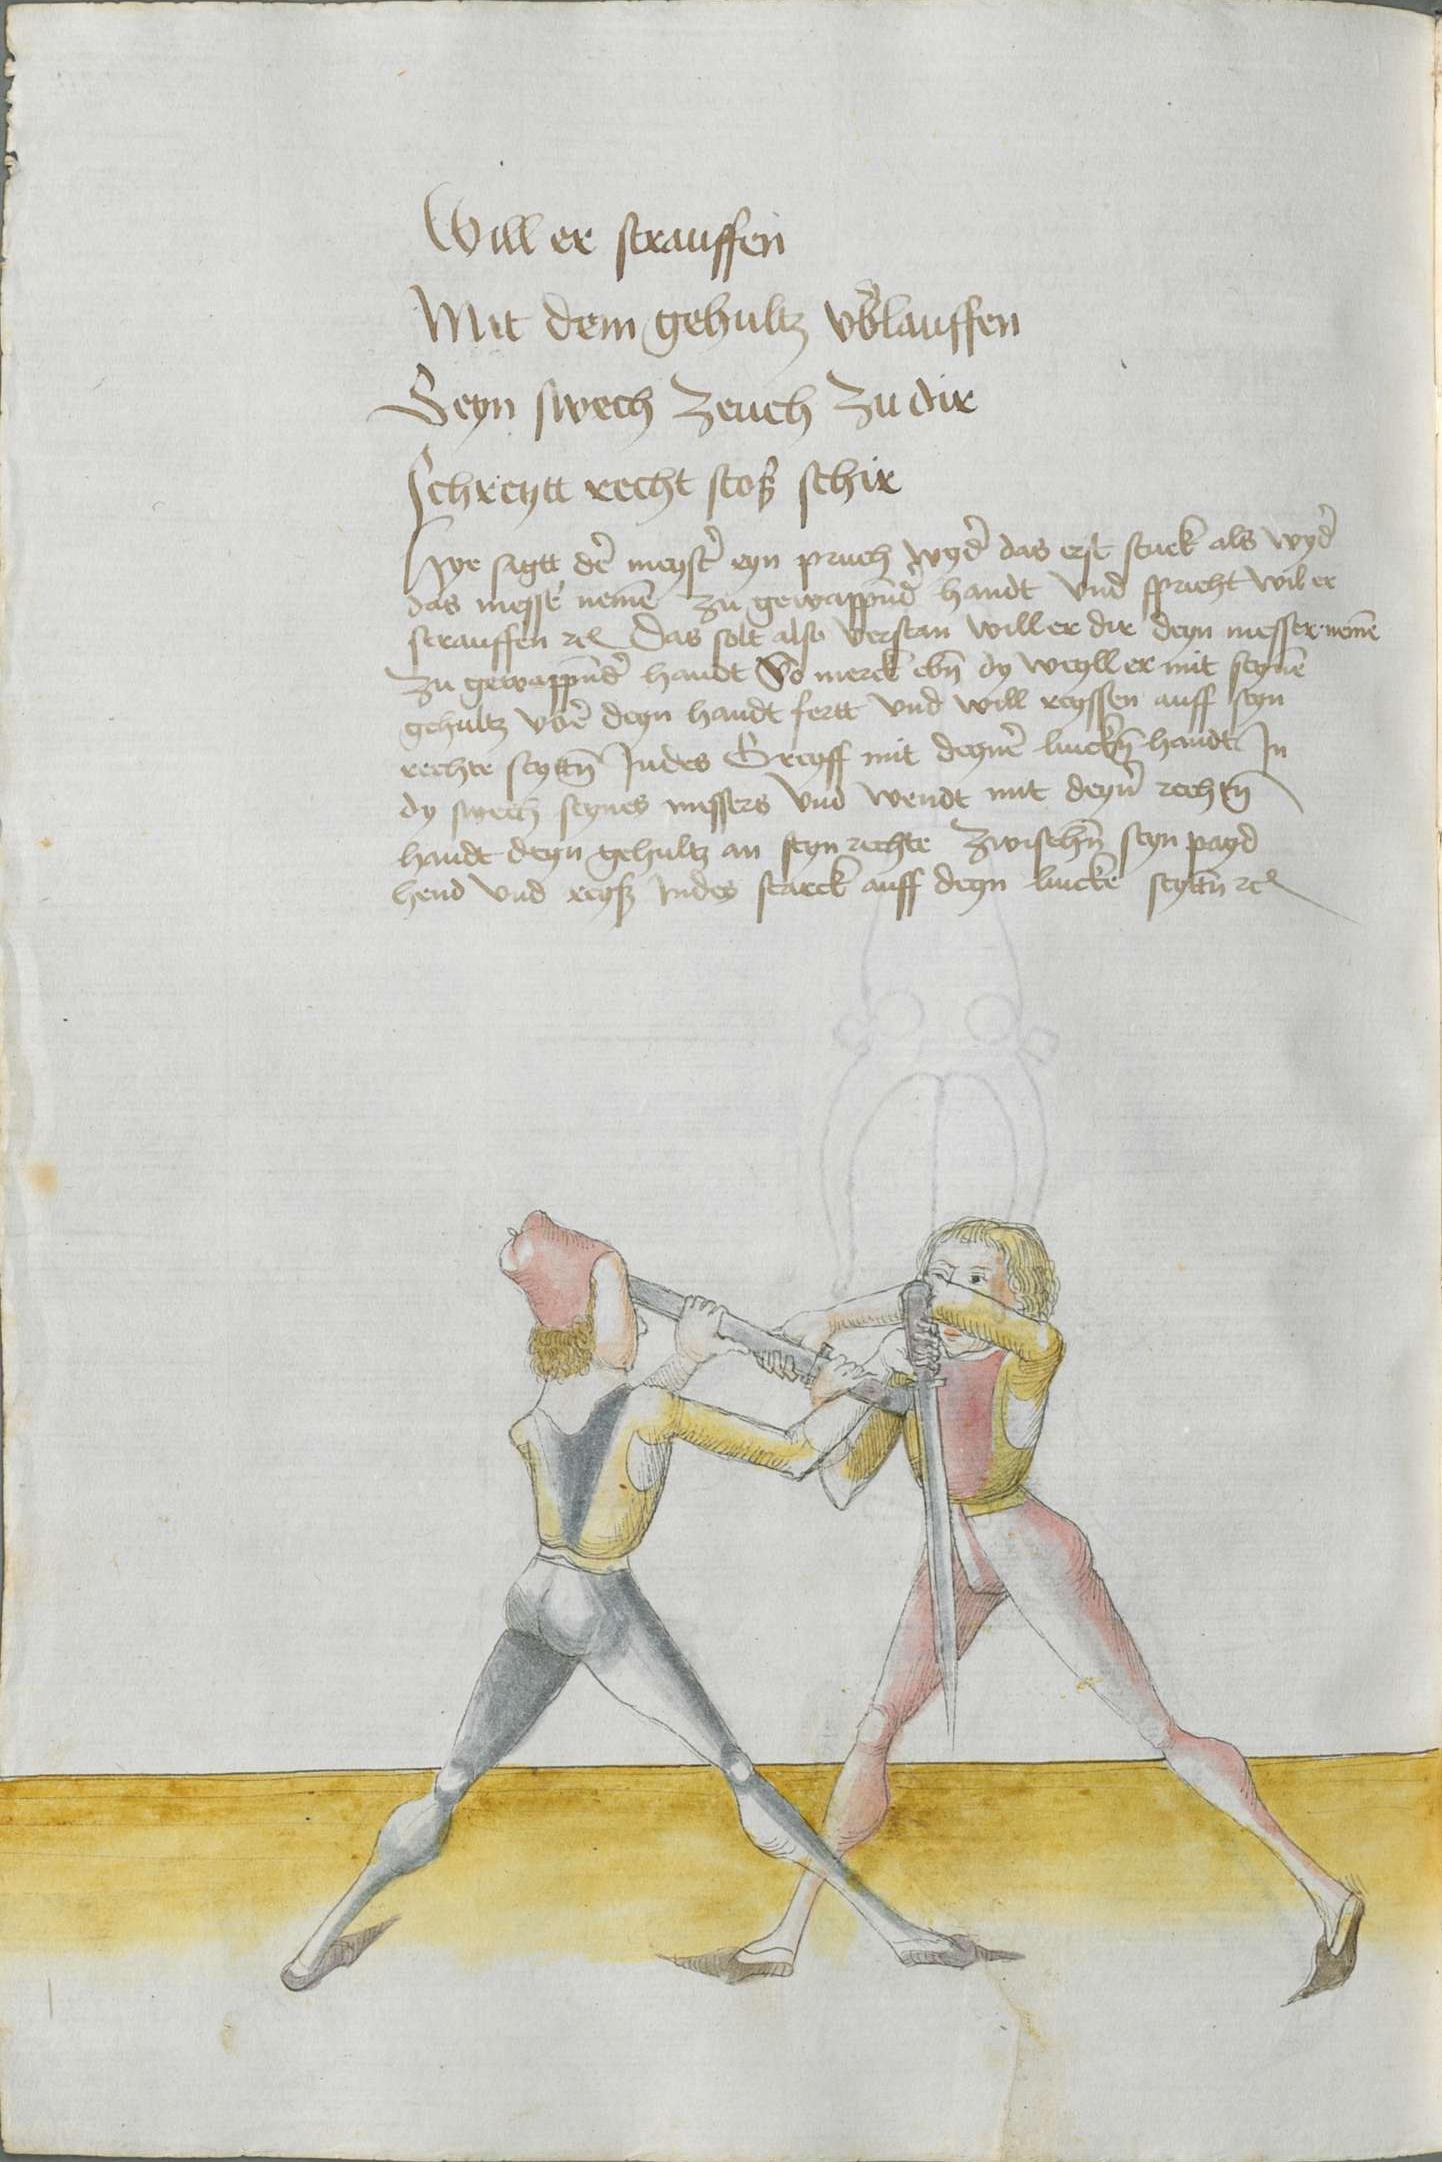 Will er strauffen
Mit dem gehultz vb̉lauffen
Seyn swech zeuch zu dir
Schreytt recht stoß schir
Hye sagtt der̉ meyster̉ eyn pruch wyd̉ das erst stuck als wyd̉
das messe' nemē zu gewappūd̉ handt vnd spricht wil er
strauffen ⁊c̃ Das solt also verstan will er dir deyn messer nemē
zu gewappūd̉ handt So merck ebn̄ dy weyll er mit seynē
gehultz vbē deyn handt fertt vnd will reyssen auff seyn
rechte seyttn̄ Indes Greyff mit deynē linckn̄ handt In
dy swech seynes messers vnd wendt mit deyn̉ rechtn̄
handt deyn gehultz an seyn rechte zwischn̄ seyn payd
hend vnd reyß Indes starck auff deyn lincke seyttn̄ ⁊c̃